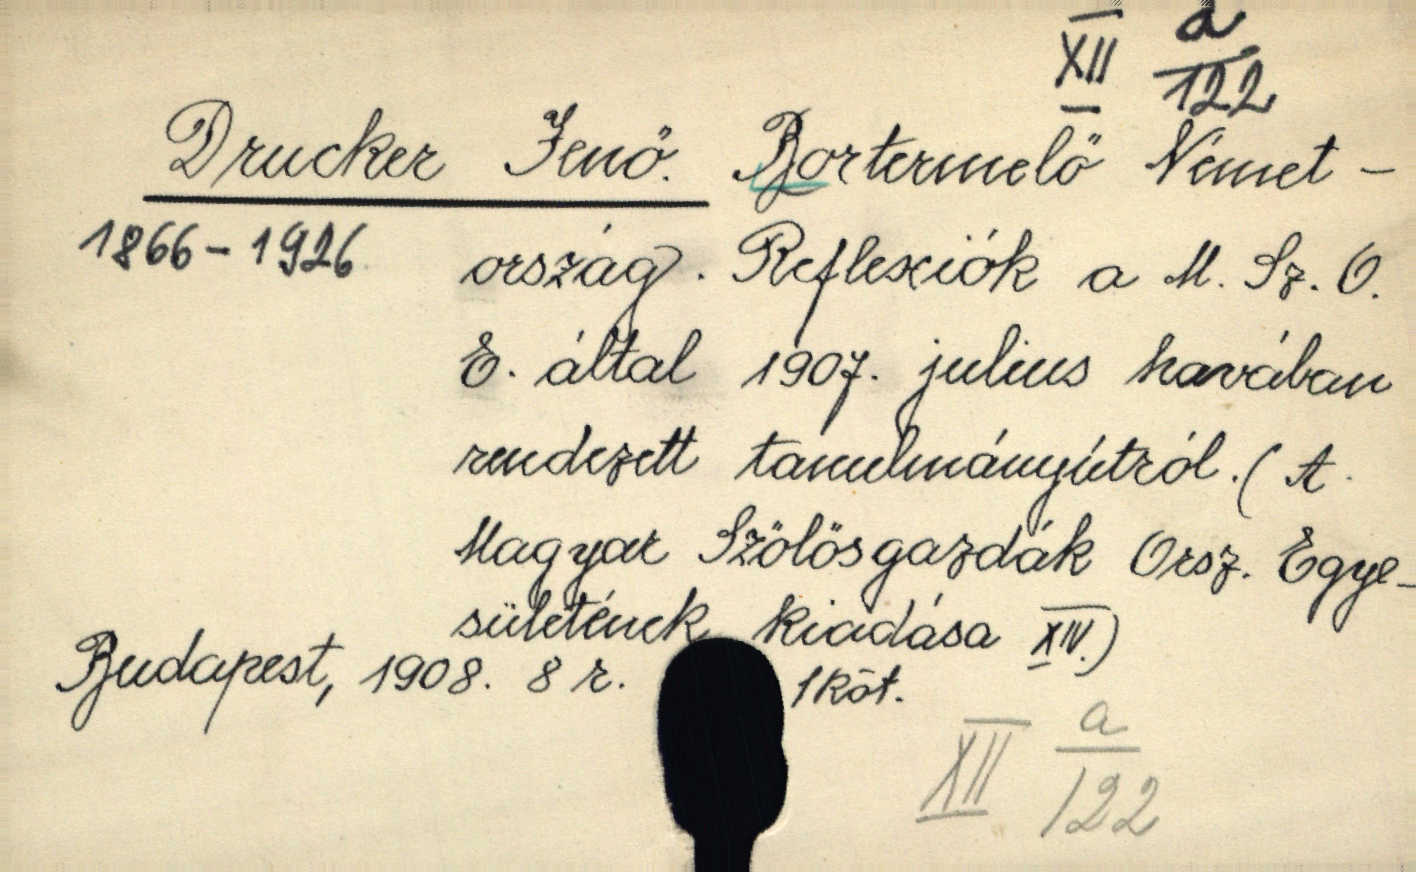 XII a/122
Drucker Jenő. Bortermelő Német-
1866-1926 ország. Reflexiók a M. Sz. O.
E. által 1907. julius havában
rendezett tanulmányútról. (A
Magyar Szőlősgazdák Orsz. Egye-
sületének kiadása XIV.)
Budapest, 1908. 8 r. 1 köt.
XII a/122